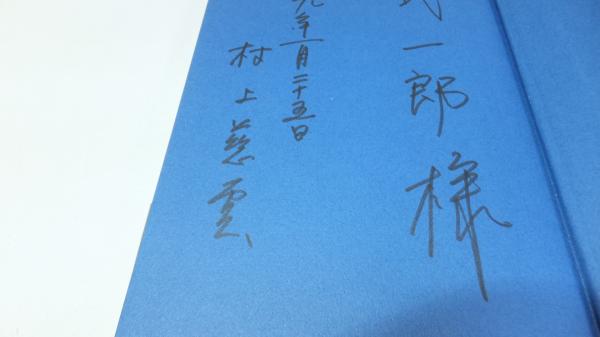 一郎様
九年一月二十五日
村上慈雲